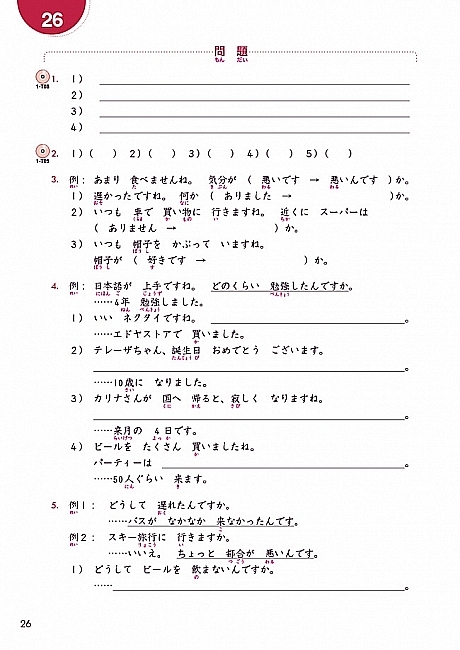 26
問題
もん だい
1-T08
1. 1)
2)
3)
4)
1-T09
2. 1)( ) 2)( ) 3)( ) 4)( ) 5)( )
3. 例: あまり 食べませんね。 気分が ( 悪いです → 悪いんです )か。
1) 遅かったですね。 何か ( ありました → )か。
2) いつも 車で 買い物に 行きますね。 近くに スーパーは
( ありません → )か。
3) いつも 帽子を かぶって いますね。
帽子が ( 好きです → )か。
4. 例: 日本語が 上手ですね。 どのくらい 勉強したんですか。
……4年 勉強しました。
1) いい ネクタイですね。 。
……エドヤストアで 買いました。
2) テレーザちゃん、誕生日 おめでとう ございます。
。
……10歳に なりました。
3) カリナさんが 国へ 帰ると、寂しく なりますね。
。
……来月の 4日です。
4) ビールを たくさん 買いましたね。
パーティーは 。
……50人ぐらい 来ます。
5. 例1: どうして 遅れたんですか。
……バスが なかなか 来なかったんです。
例2: スキー旅行に 行きますか。
……いいえ。 ちょっと 都合が 悪いんです。
1) どうして ビールを 飲まないんですか。
…… 。
26